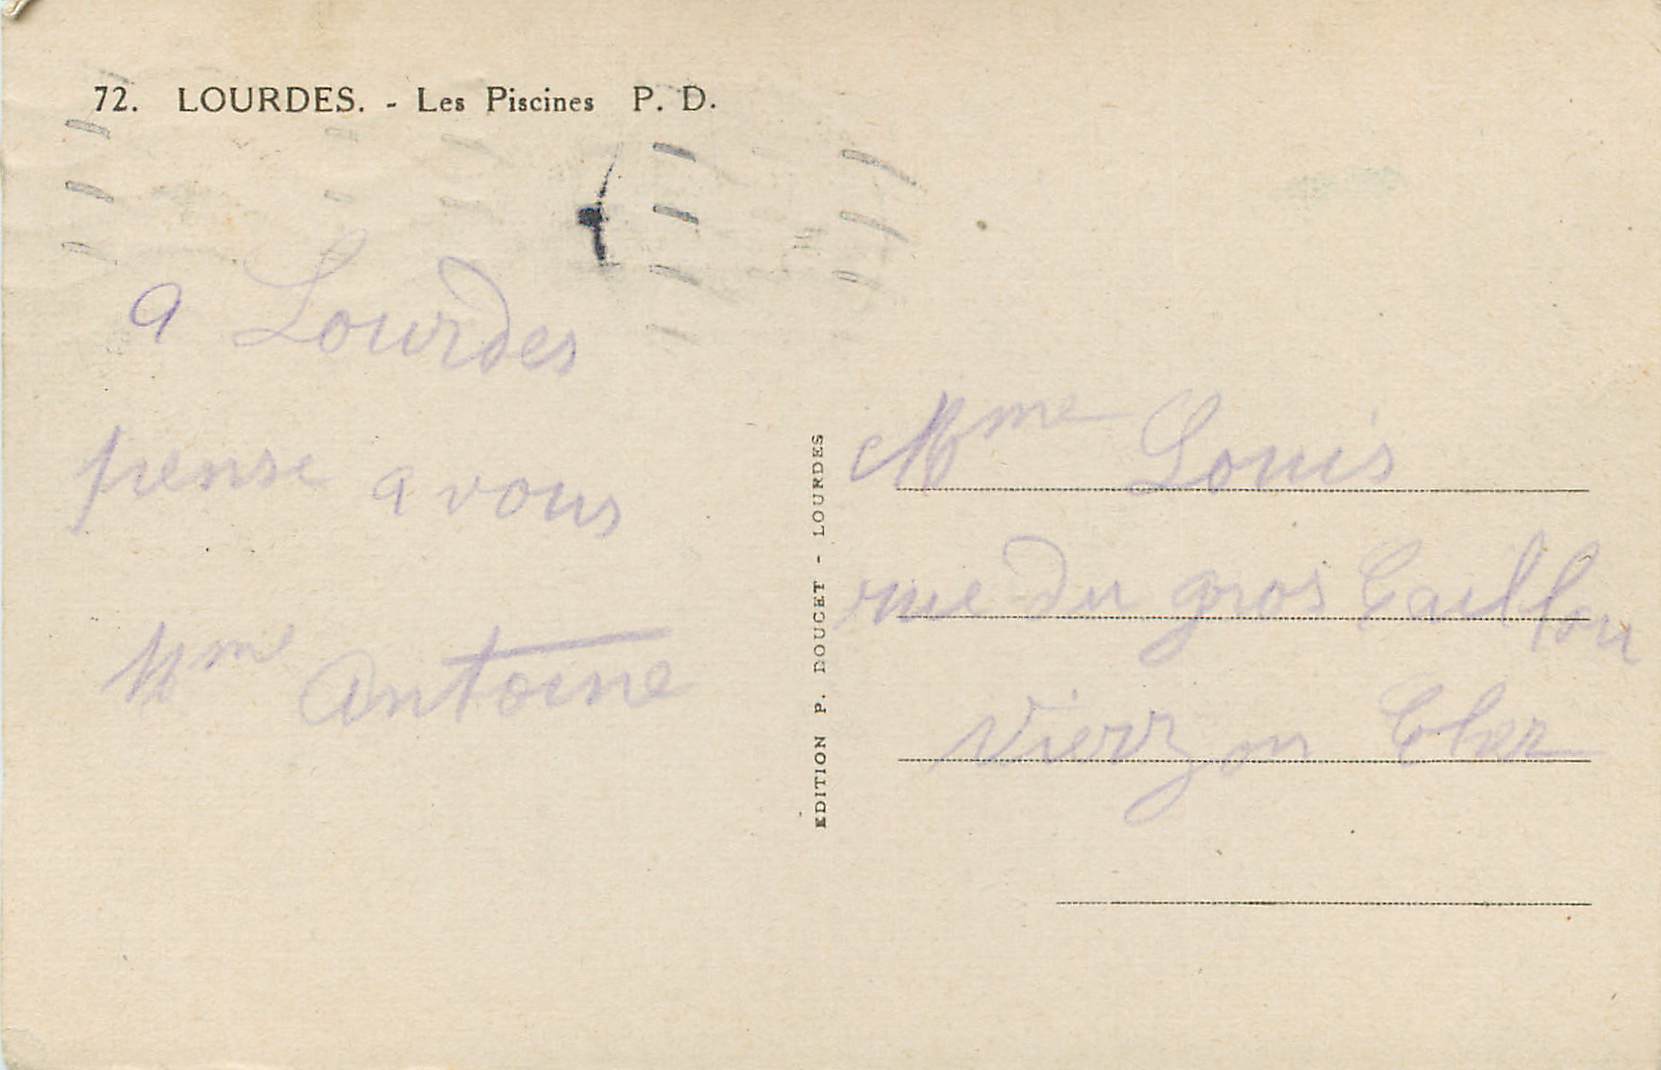 72. LOURDES. - Les Piscines P. D.
a Lourdes
pense a vous
Mme Antoine
EDITION P. DOUCET - LOURDES
Mme Louis
rue du gros Caillou
Vierzon Cher